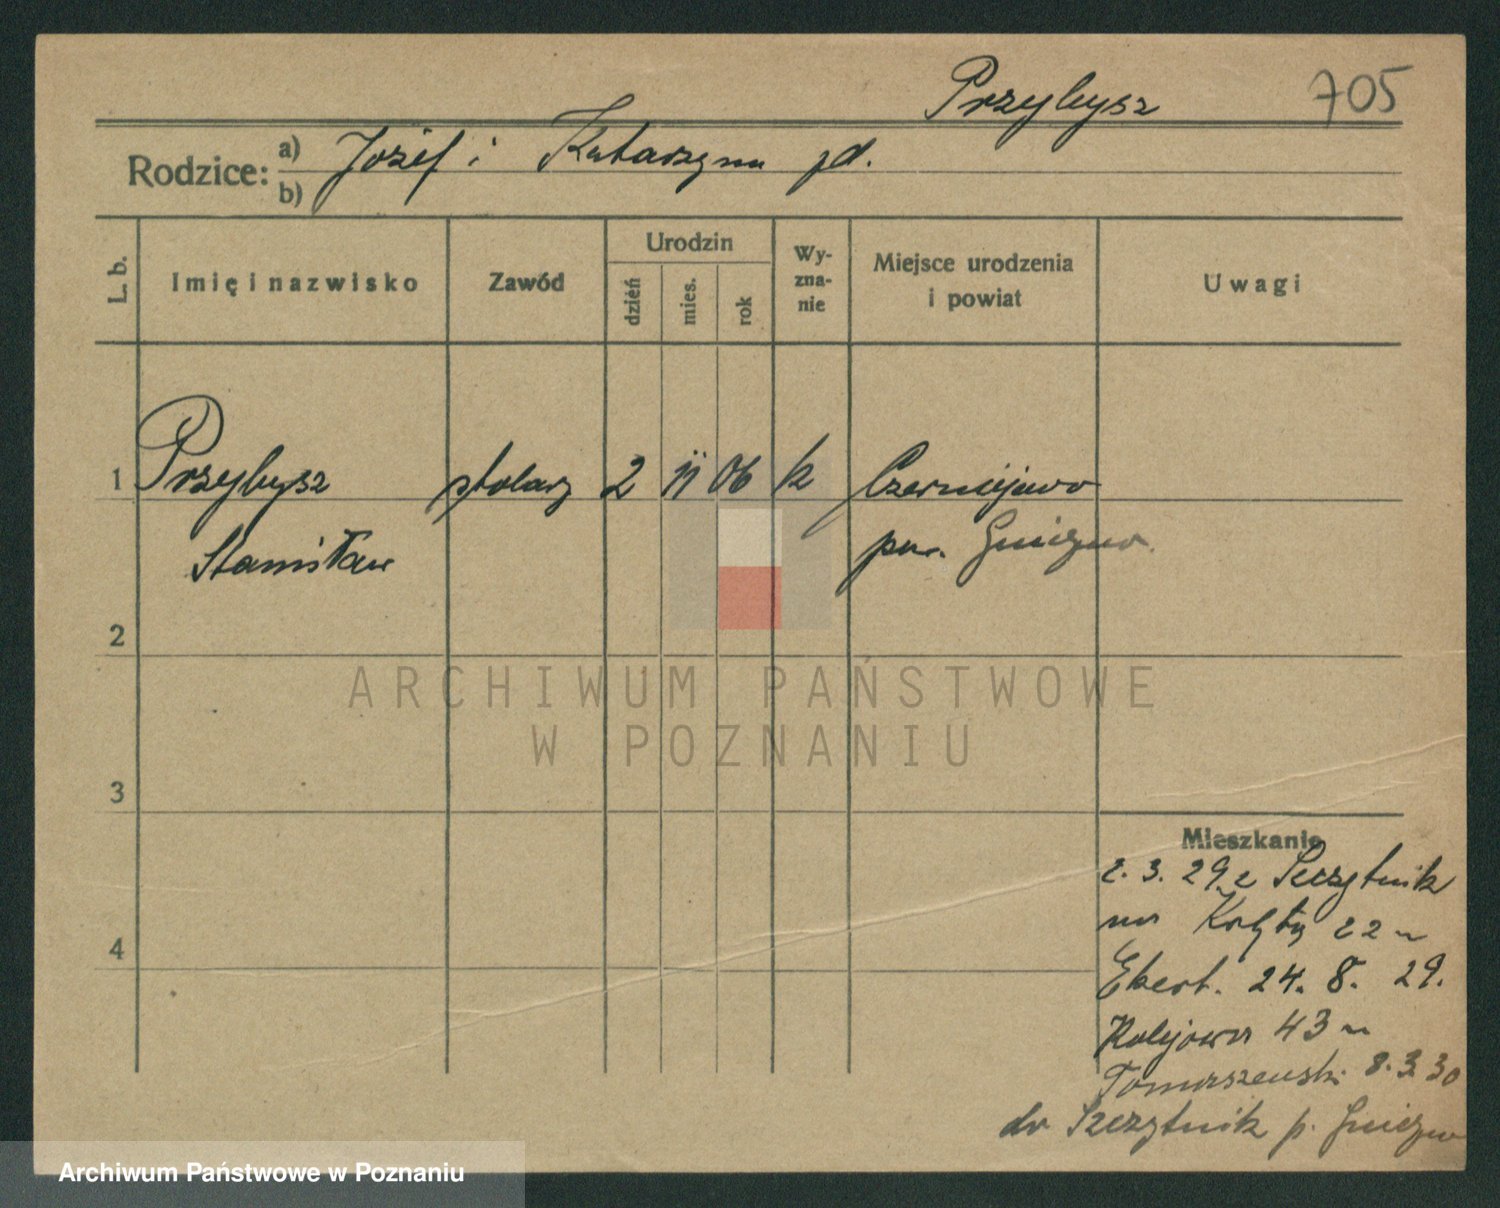 Przybysz 705
Rodzice: a) Józef i Katarzyna
b)
L. b. Imię i nazwisko Zawód Urodzin dzień mies. rok Wyznanie Miejsce urodzenia i powiat Uwagi
1 Przybysz stolarz 2 11 06 k Czerniejewo
Stanisław pow. Gniezno
2
ARCHIWUM PAŃSTWOWE
W POZNANIU
3
Mieszkanie
2. 3. 29 z Szczytnik
na 22
4
Ekert. 24. 8. 29.
Kolejowa 43
Tomaszewski 8. 3. 30
do Szczytnik p. Gniezno
Archiwum Państwowe w Poznaniu